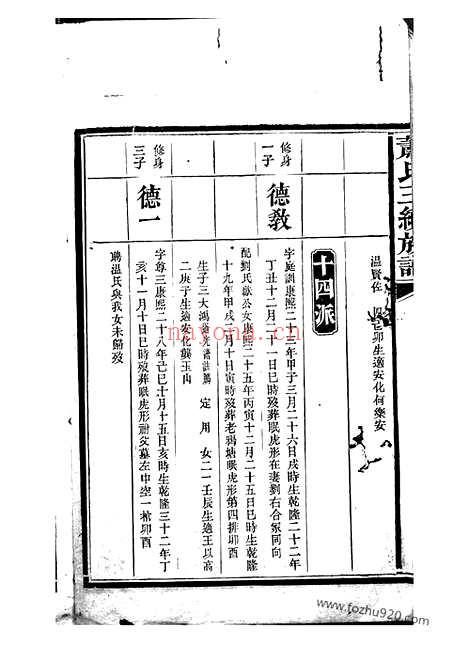 蕭氏三續族譜
溫賢佐 四己卯生適安化何樂安
十四派
修身一子
德教
字庭訓康熙二十三年甲子三月二十六日戌時生乾隆二十二年
丁丑十二月二十一日巳時歿葬眠虎形在妻劉右合冢同向
配劉氏獻公女康熙二十五年丙寅十二月二十五日巳時生乾隆
十九年甲戌月十日寅時歿葬老鴉塘眠虎形第四排卯酉
生子三大鴻 定用 女二一壬辰生適王以高
二庚子生適安化龔玉山
修身三子
德一
字尊三康熙二十八年己巳十月十五日亥時生乾隆三十二年丁
亥十一月十日巳時歿葬眠虎形祔父墓左中空一棺卯酉
聘溫氏與我女未歸歿
nayona.cn
www.fozhu920.com